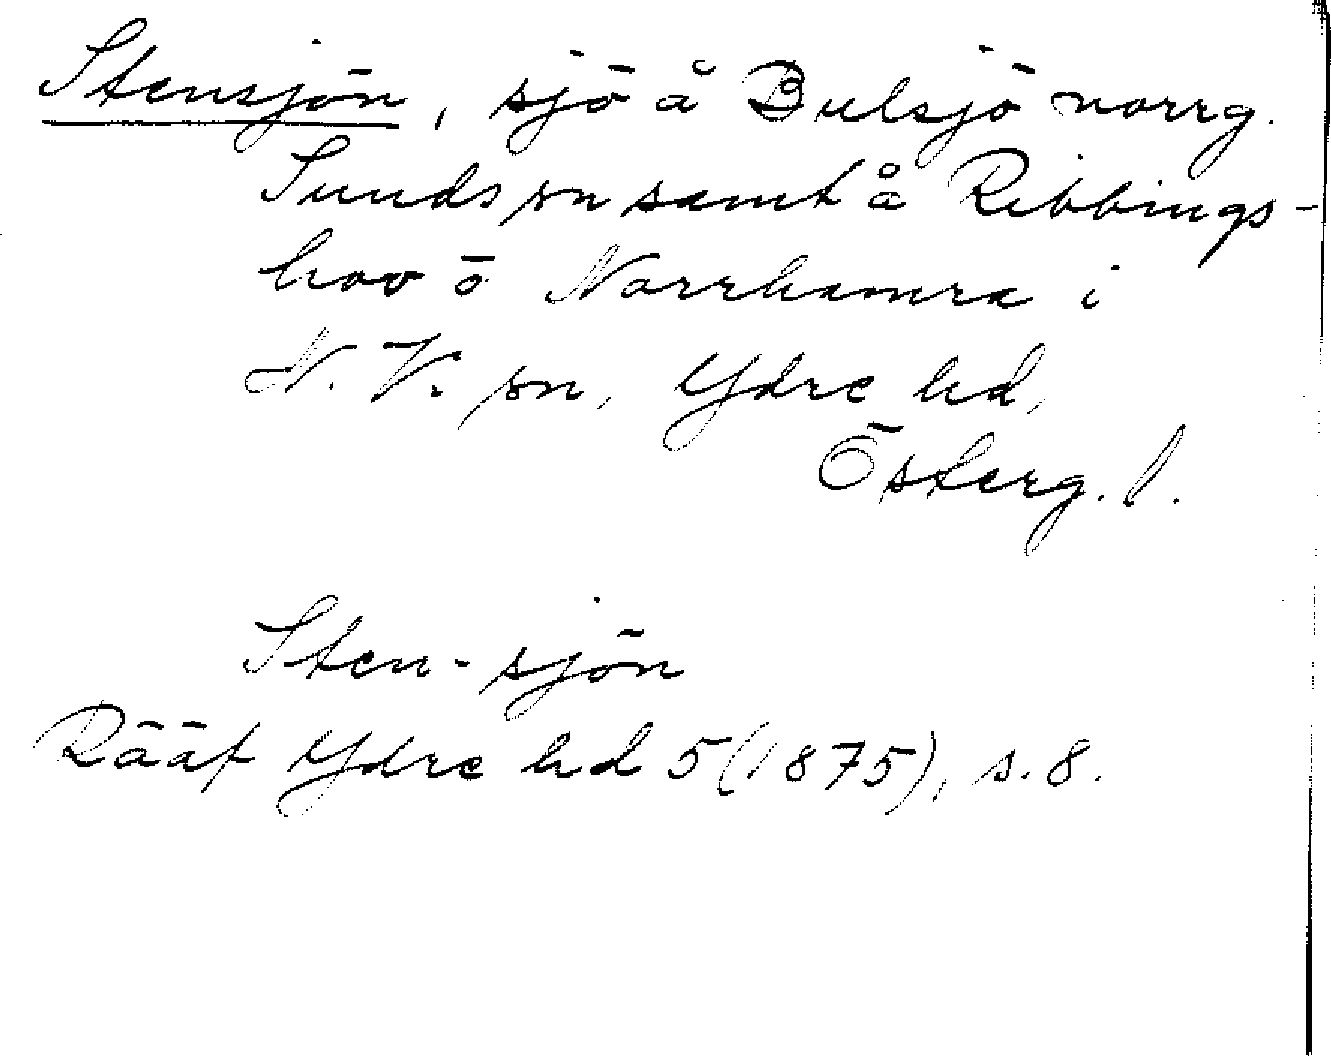 Stensjön, sjö å Bulsjö norrg.
Sunds sn samt å Ribbings-
hov o Norrhamra i
N. V. sn, Ydre hd,
Österg. l.
Sten-sjön
Rääf Ydre hd 5 (1875), s. 8.